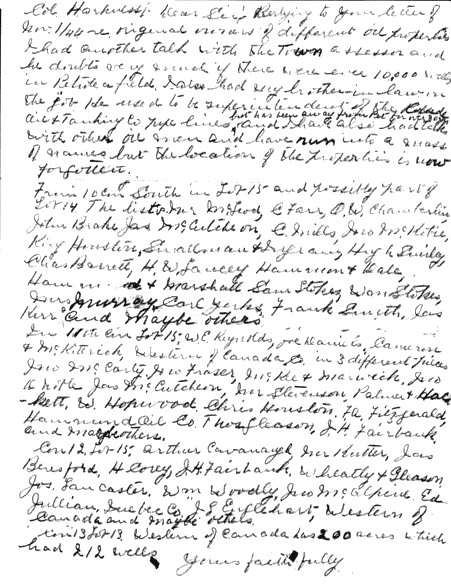 Col. Harkness. Dear Sir; Replying to your letter of
Nov. 1/44 re original owners of different oil properties
I had another talk with the Town assessor and
he doubts very much if there were ever 10,000 wells
in Petrolea field, I also had my brother in law on
the job He used to be superintendent of the
and Tanking to pipe lines, but has been away from for
and I have also had talk
with other oil men and have run into a mass
of names but the location of the properties is now
forgotten.
From 10 Con South in Lot 13 and possibly part of
Lot 14. The list McLeod, C Farr, O.W. Chamberlin
John Brake Jas McCutcheon, C. Mills, Jno McKitie,
King Houston, Smallman & Hugh Smiley,
Chas Barrett, H. W. Lancey Hammon & Neale,
Ham & Marshall Sam Stokes, Wm Stokes,
Murray Carl Yerks, Frank Smith, Jas
Kerr and Maybe others.
In 11th Con Lot 13, W.C. Reynolds, Joe Daniels, Cameron
& McKittrick, Western of Canada Co. in 3 different Places
Jno McCarty, Jno Fraser, McKee & Marwick, Jno
Jas McCutcheon, Mr Stevenson, Palmer & Hac
-kett, W. Hopwood Chris Houston, Fitzgerald,
Hammond Oil Co. Thos Gleason, J.H. Fairbank,
and May others.
Con 12, Lot 13, Arthur Cavanaugh Mr Rutter, Jas
Beresford, H Corey, J.H. Fairbank, Wheatly & Gleason,
Jos. Lancaster. Wm Woodly, Jno McAlpine. Ed
Jullian, Quebec Co, J. L Englehart, Western of
Canada and maybe others
Con 13 Lot 13 Western of Canada has 200 acres which
had 212 wells
Yours faithfully